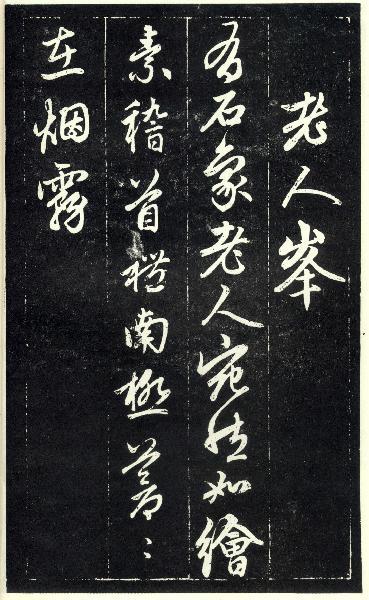 老人峯
有石象老人宛然如繪
素稽首禮南極蒼〻
在烟霧